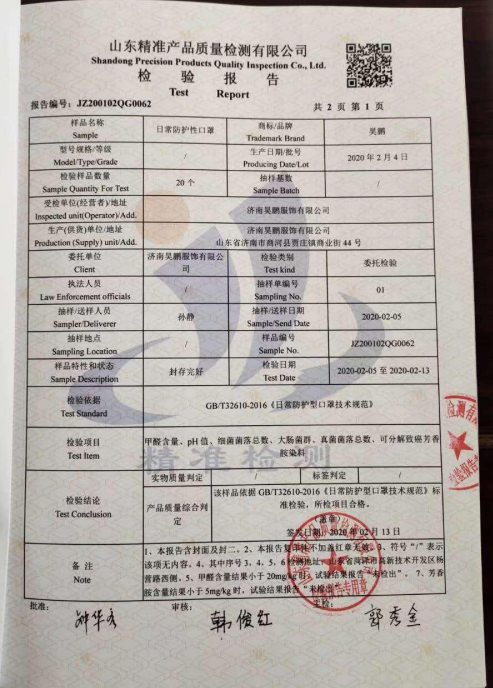 山东精准产品质量检测有限公司
Shandong Precision Products Quality Inspection Co., Ltd.
检 验 报 告
Test Report
报告编号: JZ200102QG0062 共 2 页 第 1 页
样品名称 Sample 日常防护性口罩 商标/品牌 Trademark Brand 昊鹏
型号规格/等级 Model/Type/Grade / 生产日期/批号 Producing Date/Lot 2020 年 2 月 4 日
检验样品数量 Sample Quantity For Test 20 个 抽样基数 Sample Batch /
受检单位(经营者)/地址 Inspected unit(Operator)/Add. 济南昊鹏服饰有限公司
生产(供货)单位/地址 Production (Supply) unit/Add. 济南昊鹏服饰有限公司
山东省济南市商河县贾庄镇商业街 44 号
委托单位 Client 济南昊鹏服饰有限公司 检验类别 Test kind 委托检验
执法人员 Law Enforcement officials / 抽样单编号 Sampling No. 01
抽样/送样人员 Sampler/Deliverer 孙静 抽样/送样日期 Sample/Send Date 2020-02-05
抽样地点 Sampling Location / 样品编号 Sample No. JZ200102QG0062
样品特性和状态 Sample Description 封存完好 检验日期 Test Date 2020-02-05 至 2020-02-13
检验依据 Test Standard GB/T32610-2016《日常防护型口罩技术规范》
检验项目 Test Item 甲醛含量、pH 值、细菌菌落总数、大肠菌群、真菌菌落总数、可分解致癌芳香
胺染料
精准检测
实物质量判定 / 标签判定 /
检验结论 Test Conclusion 产品质量综合判定 该样品依据 GB/T32610-2016《日常防护型口罩技术规范》标
准检验，所检项目合格。
(盖章)
签发日期: 2020 年 02 月 13 日
备 注 Note 1、本报告含封面及封二。2、本报告复印件不加盖红章无效。3、符号"/"表示
该项无内容。4、其中序号 3、4、5、6 检测地址: 山东省菏泽市高新技术开发区杨
营路西侧。5、甲醛含量结果小于 20mg/kg 时，试验结果报告"未检出"。7、芳香
胺含量结果小于 5mg/kg 时，试验结果报告"未检出"
批准: 审核: 主检:
韩俊红 郭秀金